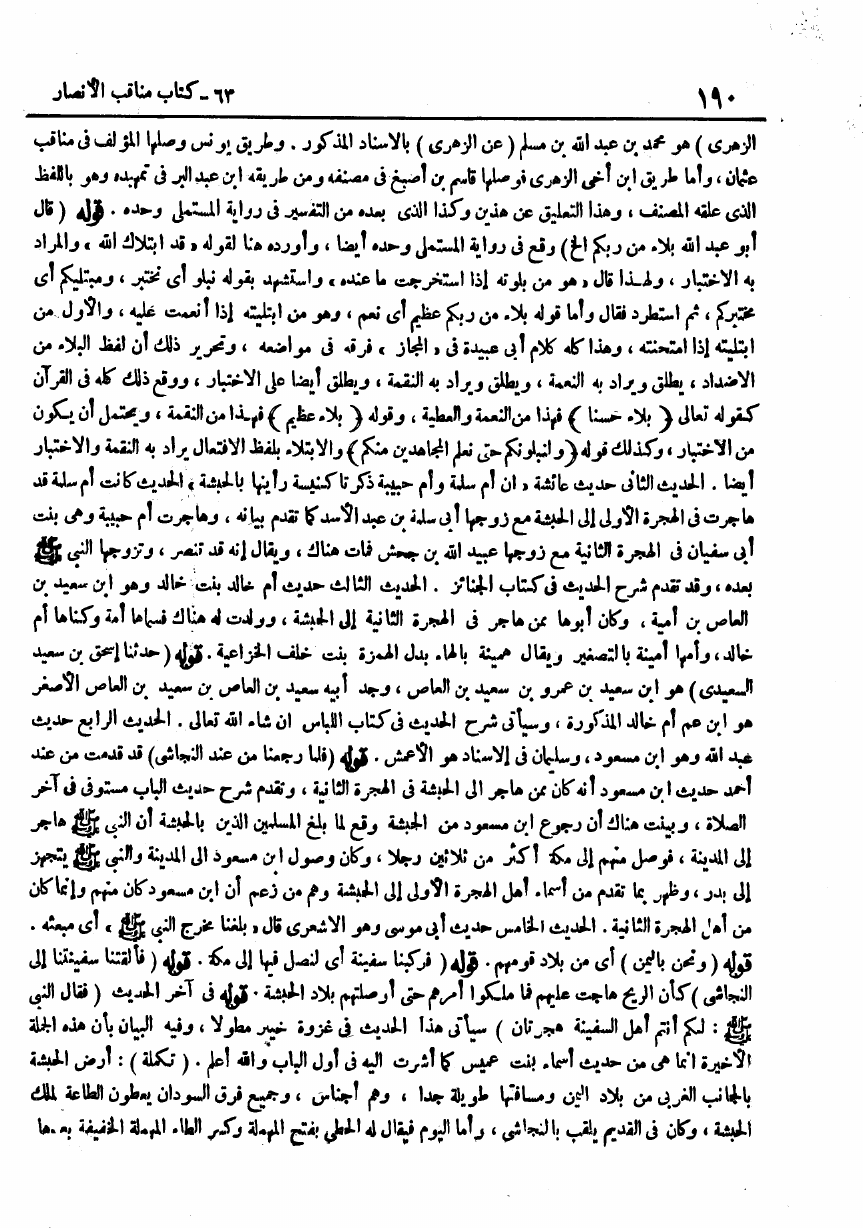 ١٩٠
٦٣ - كتاب مناقب الأنصار
الزهرى ) هو محمد بن عبد الله بن مسلم ( عن الزهرى ) بالاسناد المذكور . وطريق يونس وصلها المؤلف فى مناقب
عثمان ، وأما طريق ابن أخى الزهرى فوصلها قاسم بن أصبغ فى مصنفه ومن طريقه ابن عبد البر فى تمهيده وهو باللفظ
الذى علقه المصنف ، وهذا التعليق عن هذين وكذا الذى بعده من التفسير فى رواية المستملى وحده . قوله ( قال
أبو عبد الله بلاء من ربكم الخ ) وقع فى رواية المستملى وحده أيضا ، وأورده هنا لقوله « قد ابتلاك الله » والمراد
به الاختبار ، ولهذا قال « هو من بلوته إذا استخرجت ما عنده » واستشهد بقوله نبلو أى نختبر ، ومبتليكم أى
مختبركم ، ثم استطرد فقال وأما قوله بلاء من ربكم عظيم أى نعم ، وهو من ابتليته إذا أنعمت عليه ، والأول من
ابتليته إذا امتحنته ، وهذا كله كلام أبى عبيدة فى « المجاز » فرقه فى مواضعه ، وتحرير ذلك أن لفظ البلاء من
الاضداد ، يطلق ويراد به النعمة ، ويطلق ويراد به النقمة ، ويطلق أيضا على الاختبار ، ووقع ذلك كله فى القرآن
كقوله تعالى ( بلاء حسنا ) فهذا من النعمة والعطية ، وقوله ( بلاء عظيم ) فهذا من النقمة ، ويحتمل أن يكون
من الاختبار ، وكذلك قوله ( ولنبلونكم حتى نعلم المجاهدين منكم ) والابتلاء بلفظ الافتعال يراد به النقمة والاختبار
أيضا . الحديث الثانى حديث عائشة « ان أم سلمة وأم حبيبة ذكرتا كنيسة رأينها بالحبشة » الحديث كانت أم سلمة قد
هاجرت فى الهجرة الأولى إلى الحبشة مع زوجها أبى سلمة بن عبد الأسد كما تقدم بيانه ، وهاجرت أم حبيبة وهى بنت
أبى سفيان فى الهجرة الثانية مع زوجها عبيد الله بن جحش فمات هناك ، ويقال إنه قد تنصر ، وتزوجها النبى ﷺ
بعده ، وقد تقدم شرح الحديث فى كتاب الجنائز . الحديث الثالث حديث أم خالد بنت خالد وهو ابن سعيد بن
العاص بن أمية ، وكان أبوها ممن هاجر فى الهجرة الثانية إلى الحبشة ، وولدت له هناك فسماها أمة وكناها أم
خالد ، وأمها أمينة بالتصغير ويقال همينة بالهاء بدل الهمزة بنت خلف الخزاعية . قوله ( حدثنا إسحق بن سعيد
السعيدى ) هو ابن سعيد بن عمرو بن سعيد بن العاص ، وجد أبيه سعيد بن العاص بن سعيد بن العاص الأصغر
هو ابن عم أم خالد المذكورة ، وسيأتى شرح الحديث فى كتاب اللباس ان شاء الله تعالى . الحديث الرابع حديث
عبد الله وهو ابن مسعود ، وسليمان فى الاسناد هو الأعمش . قوله ( فلما رجعنا من عند النجاشى ) قد قدمت من عند
أحمد حديث ابن مسعود أنه كان ممن هاجر الى الحبشة فى الهجرة الثانية ، وتقدم شرح حديث الباب مستوفى فى آخر
الصلاة ، وبينت هناك أن رجوع ابن مسعود من الحبشة وقع لما بلغ المسلمين الذين بالحبشة أن النبى ﷺ هاجر
إلى المدينة ، فوصل منهم إلى مكة أكثر من ثلاثين رجلا ، وكان وصول ابن مسعود الى المدينة والنبى ﷺ يتجهز
إلى بدر ، وظهر بما تقدم من أسماء أهل الهجرة الأولى إلى الحبشة وهم من زعم أن ابن مسعود كان منهم وإنما كان
من أهل الهجرة الثانية . الحديث الخامس حديث أبى موسى وهو الاشعرى قال « بلغنا مخرج النبى ﷺ » أى مبعثه .
قوله ( ونحن باليمن ) أى من بلاد قومهم . قوله ( فركبنا سفينة أى لنصل فيها إلى مكة . قوله ( فألقتنا سفينتنا إلى
النجاشى ) كأن الريح هاجت عليهم فما ملكوا أمرهم حتى أوصلتهم بلاد الحبشة . قوله فى آخر الحديث ( فقال النبى
ﷺ : لكم أنتم أهل السفينة هجرتان ) سيأتى هذا الحديث فى غزوة خيبر مطولا ، وفيه البيان بأن هذه الجملة
الأخيرة انما هى من حديث أسماء بنت عميس كما أشرت اليه فى أول الباب والله أعلم . ( تكملة ) : أرض الحبشة
بالجانب الغربى من بلاد اليمن ومسافتها طويلة جدا ، وهم أجناس ، وجميع فرق السودان يعطون الطاعة لملك
الحبشة ، وكان فى القديم يلقب بالنجاشى ، وأما اليوم فيقال له الحطى بفتح المهملة وكسر الطاء المهملة الخفيفة بعدها